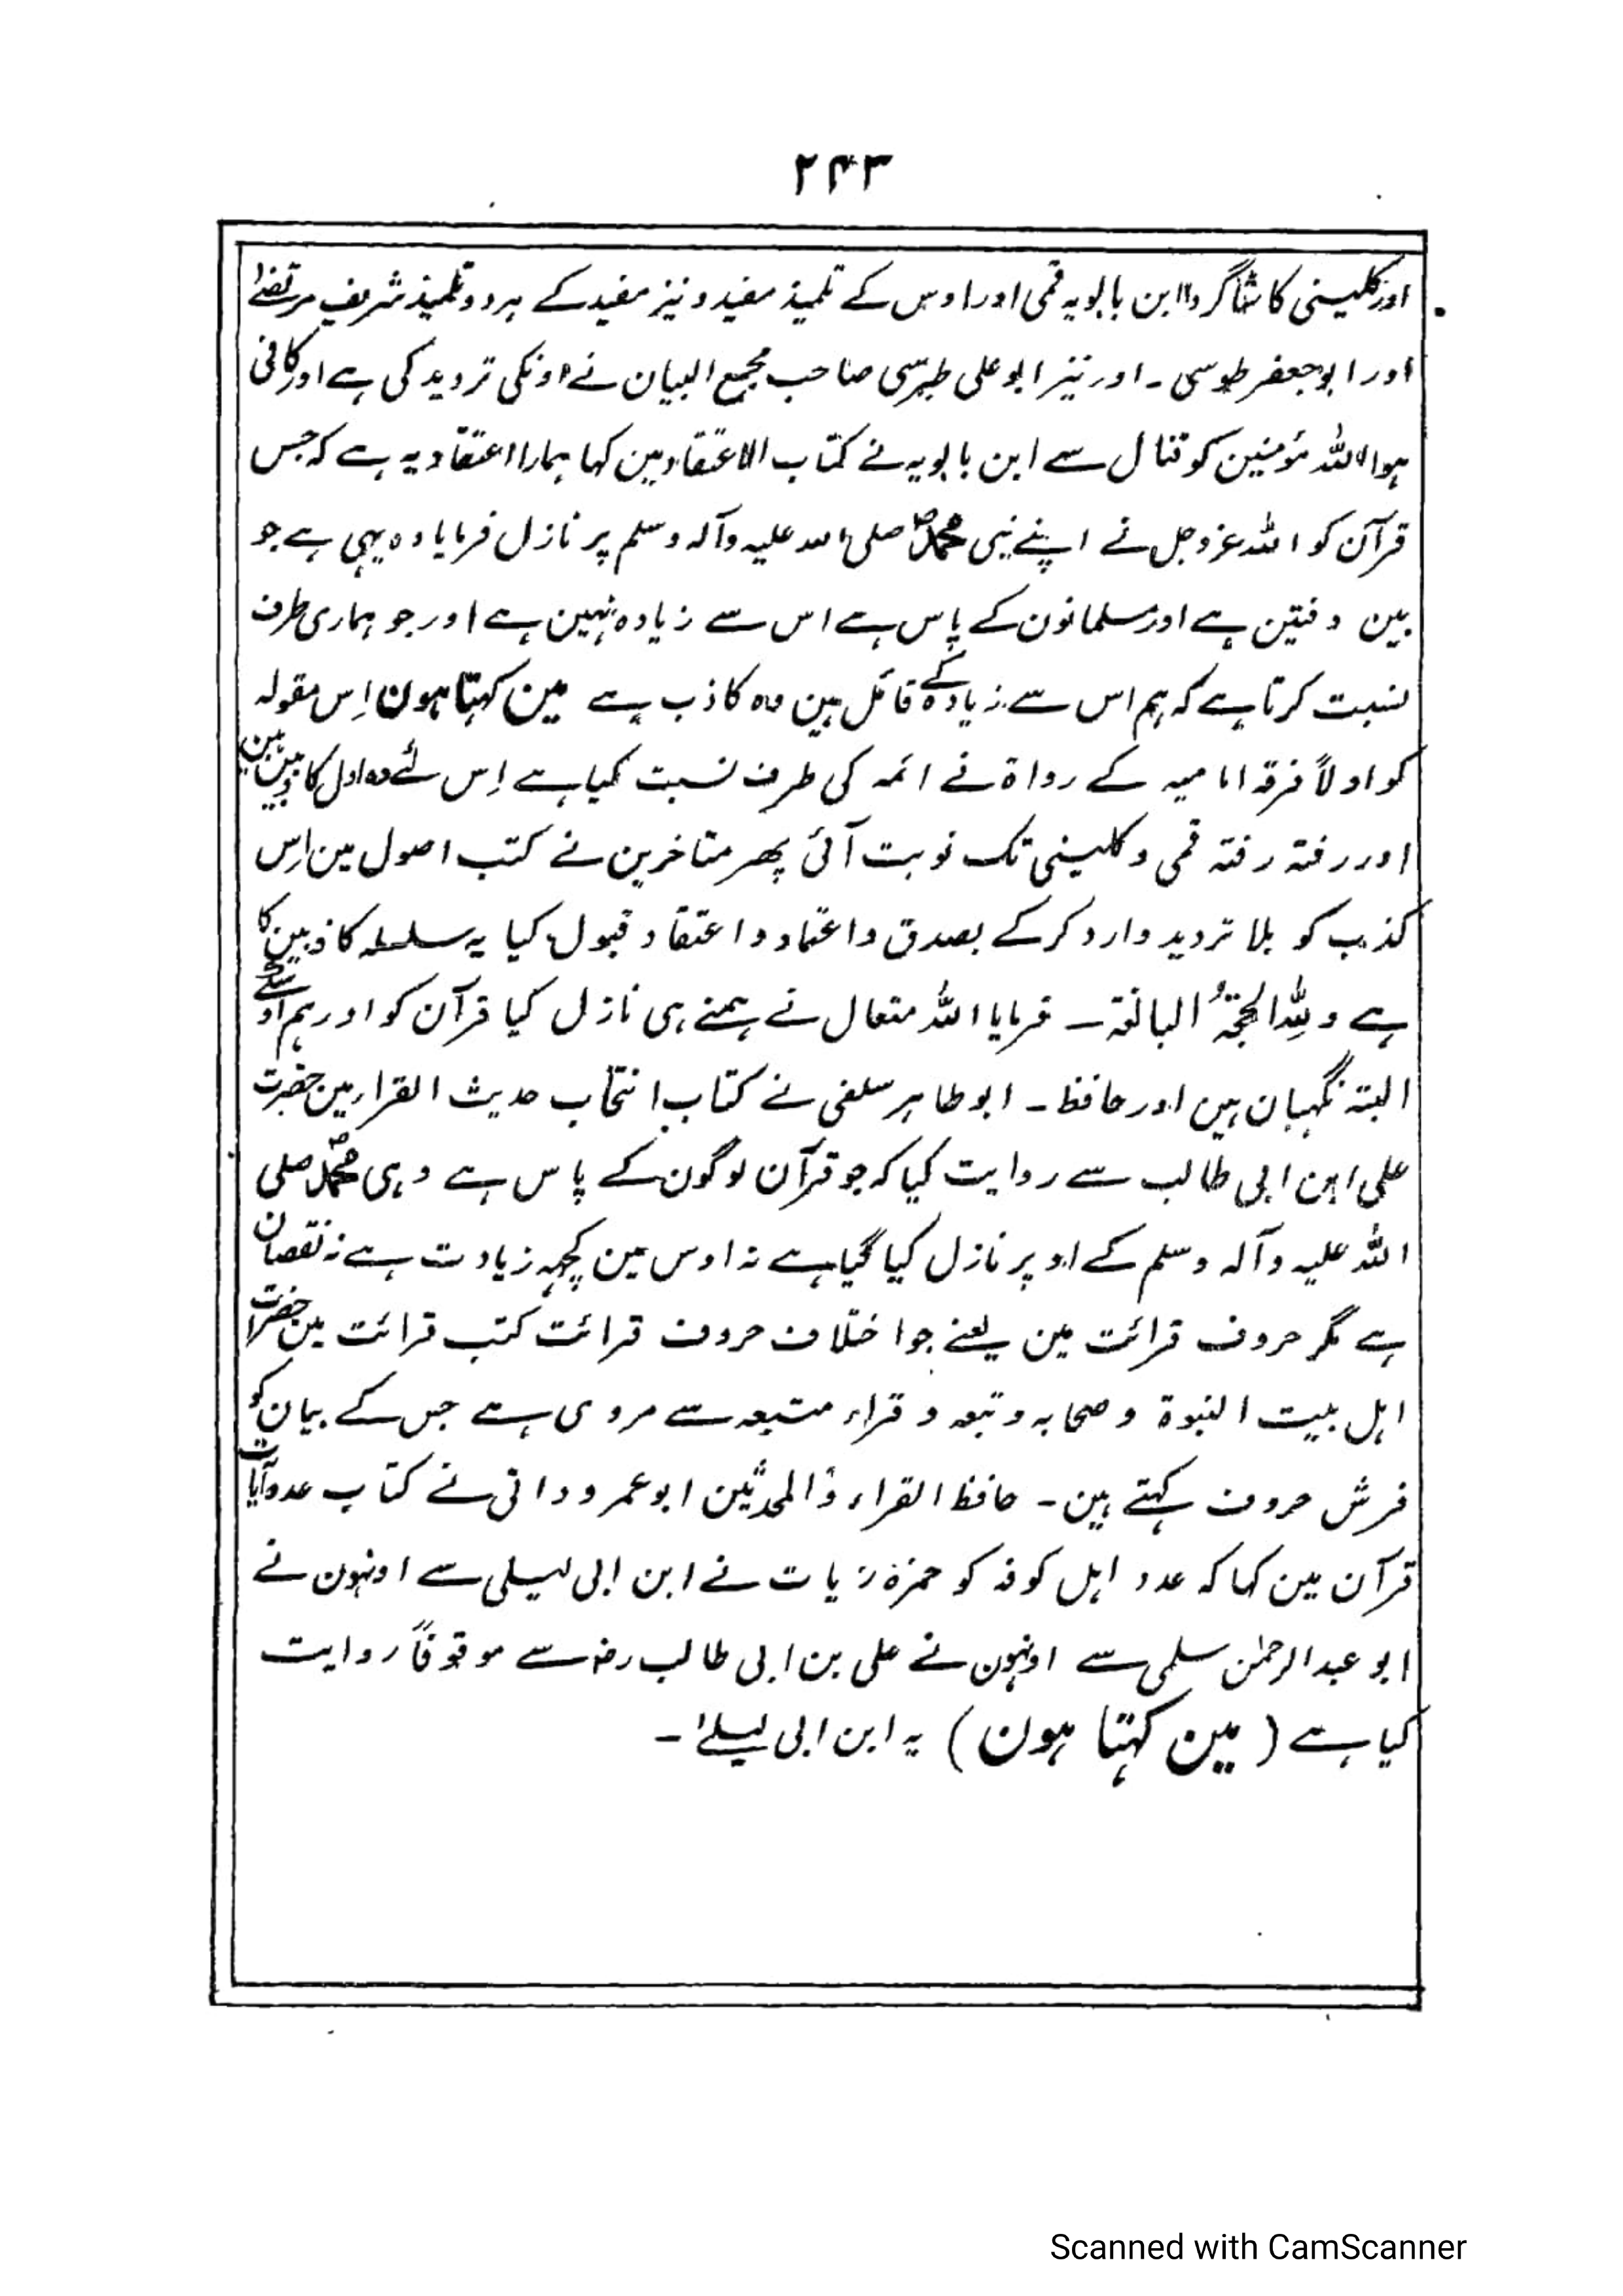 ۲۴۳
اور کلینی کا شاگرد ابن بابویہ قمی اور اوس کے تلمیذ مفید و نیز مفید کے ہر دو تلمیذ شریف مرتضٰے
اور ابو جعفر طوسی ۔ اور نیز ابو علی طبرسی صاحب مجمع البیان نے اونکی تردید کی ہے اور کافی
ہوا اللہ مؤمنین کو قتال سے ابن بابویہ نے کتاب الاعتقاد مین کہا ہمارا اعتقاد یہ ہے کہ جس
قرآن کو اللہ عزوجل نے اپنے نبی محمدؐ صلی اللہ علیہ وآلہ وسلم پر نازل فرمایا وہ یہی ہے جو
بین دفتین ہے اور مسلمانون کے پاس ہے اس سے زیادہ نہین ہے اور جو ہماری طرف
نسبت کرتا ہے کہ ہم اس سے زیادہ کے قائل ہین وہ کاذب ہے مین کہتا ہون اِس مقولہ
کو اولاً فرقہ امامیہ کے رواۃ نے ائمہ کی طرف نسبت کیا ہے اِس لئے وہ اول کاذبین ہین
اور رفتہ رفتہ قمی و کلینی تک نوبت آئی پھر متاخرین نے کتب اصول مین اِس
کذب کو بلا تردید وارد کرکے بصدق و اعتماد و اعتقاد قبول کیا یہ سلسلہ کاذبین کا
ہے وللہِ الحجۃُ البالغۃ ۔ فرمایا اللہ متعال نے ہمنے ہی نازل کیا قرآن کو اور ہم اوسکے
البتہ نگہبان ہین اور حافظ ۔ ابو طاہر سلفی نے کتاب انتخاب حدیث القرا مین حضرت
علی ابن ابی طالب سے روایت کیا کہ جو قرآن لوگون کے پاس ہے وہی محمدؐ صلی
اللہ علیہ وآلہ وسلم کے اوپر نازل کیا گیا ہے نہ اوس مین کچہہ زیادت ہے نہ نقصان
ہے مگر حروف قرائت مین یعنے جو اختلاف حروف قرائت کتب قرائت مین حضرات
اہل بیت النبوۃ و صحابہ و تبعہ و قراء متبعہ سے مروی ہے جس کے بیان کو
فرش حروف کہتے ہین ۔ حافظ القراء والمحدثین ابو عمرو دانی نے کتاب عدد آیات
قرآن مین کہا کہ عدد اہل کوفہ کو حمزۃ زیات نے ابن ابی لیلی سے اونہون نے
ابو عبد الرحمٰن سلمی سے اونہون نے علی بن ابی طالب رضؓ سے موقوفاً روایت
کیا ہے (مین کہتا ہون) یہ ابن ابی لیلےٰ ۔
Scanned with CamScanner